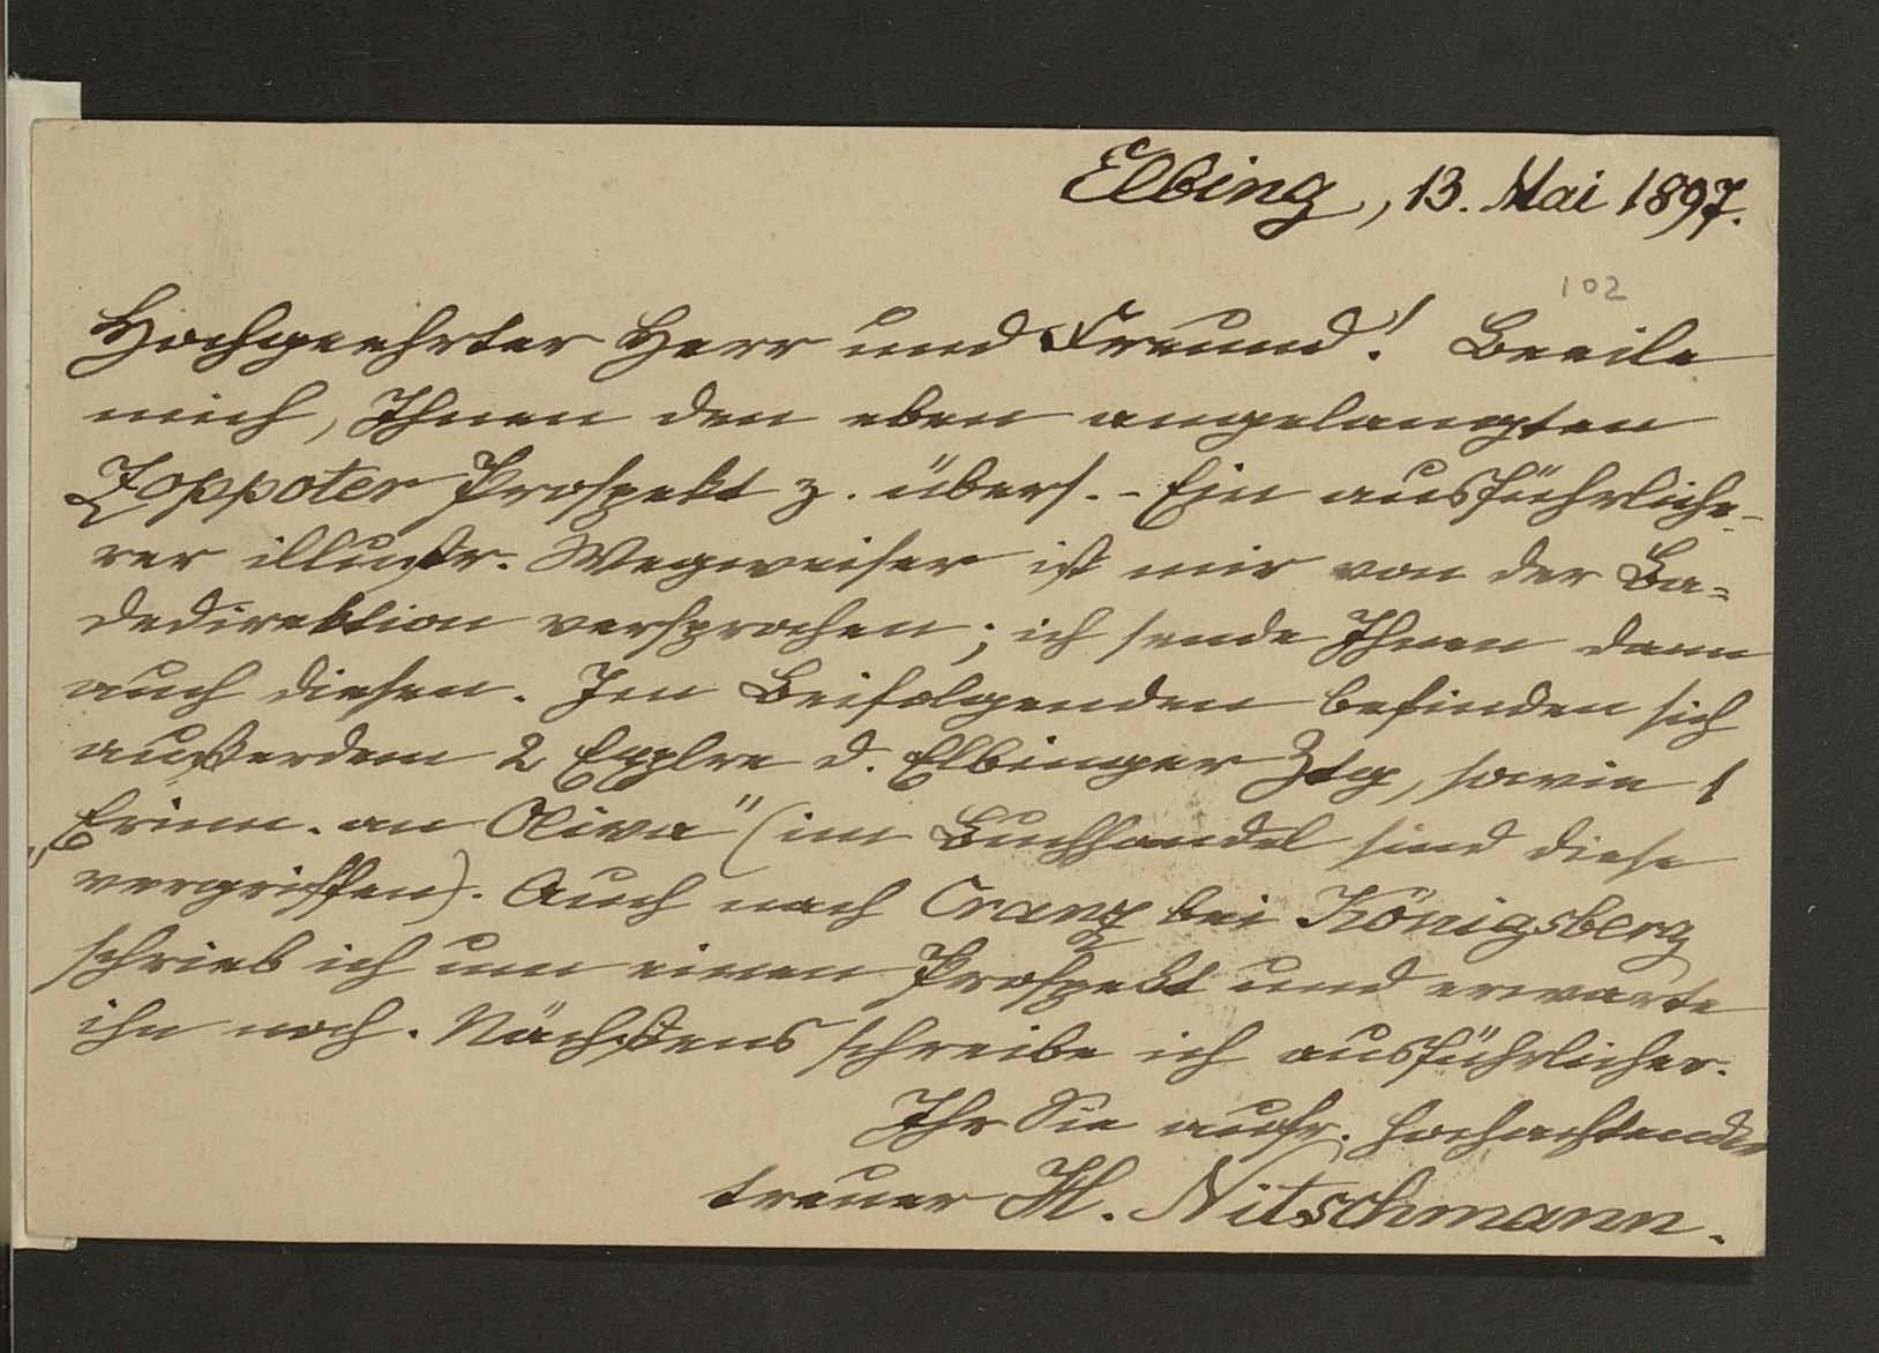 Elbing, 13. Mai 1897.
102
Hochgeehrter Herr und Freund! Beeile
mich, Ihnen den eben angelangten
Zoppoter Prospekt z. übers. - Ein ausführliche-
rer illustr. Wegweiser ist mir von der Ba=
dedirektion versprochen; ich sende Ihnen dann
auch diesen. Im Beifolgenden befinden sich
außerdem 2 Explre d. Elbinger Ztg, sowie 1
„Erinn. an Oliva" (im Buchhandel sind diese
vergriffen). Auch nach Cranz bei Königsberg
schrieb ich um einen Prospekt und erwarte
ihn noch. Nächstens schreibe ich ausführlicher.
Ihr Sie aufr. hochachtender
treuer H. Nitschmann.